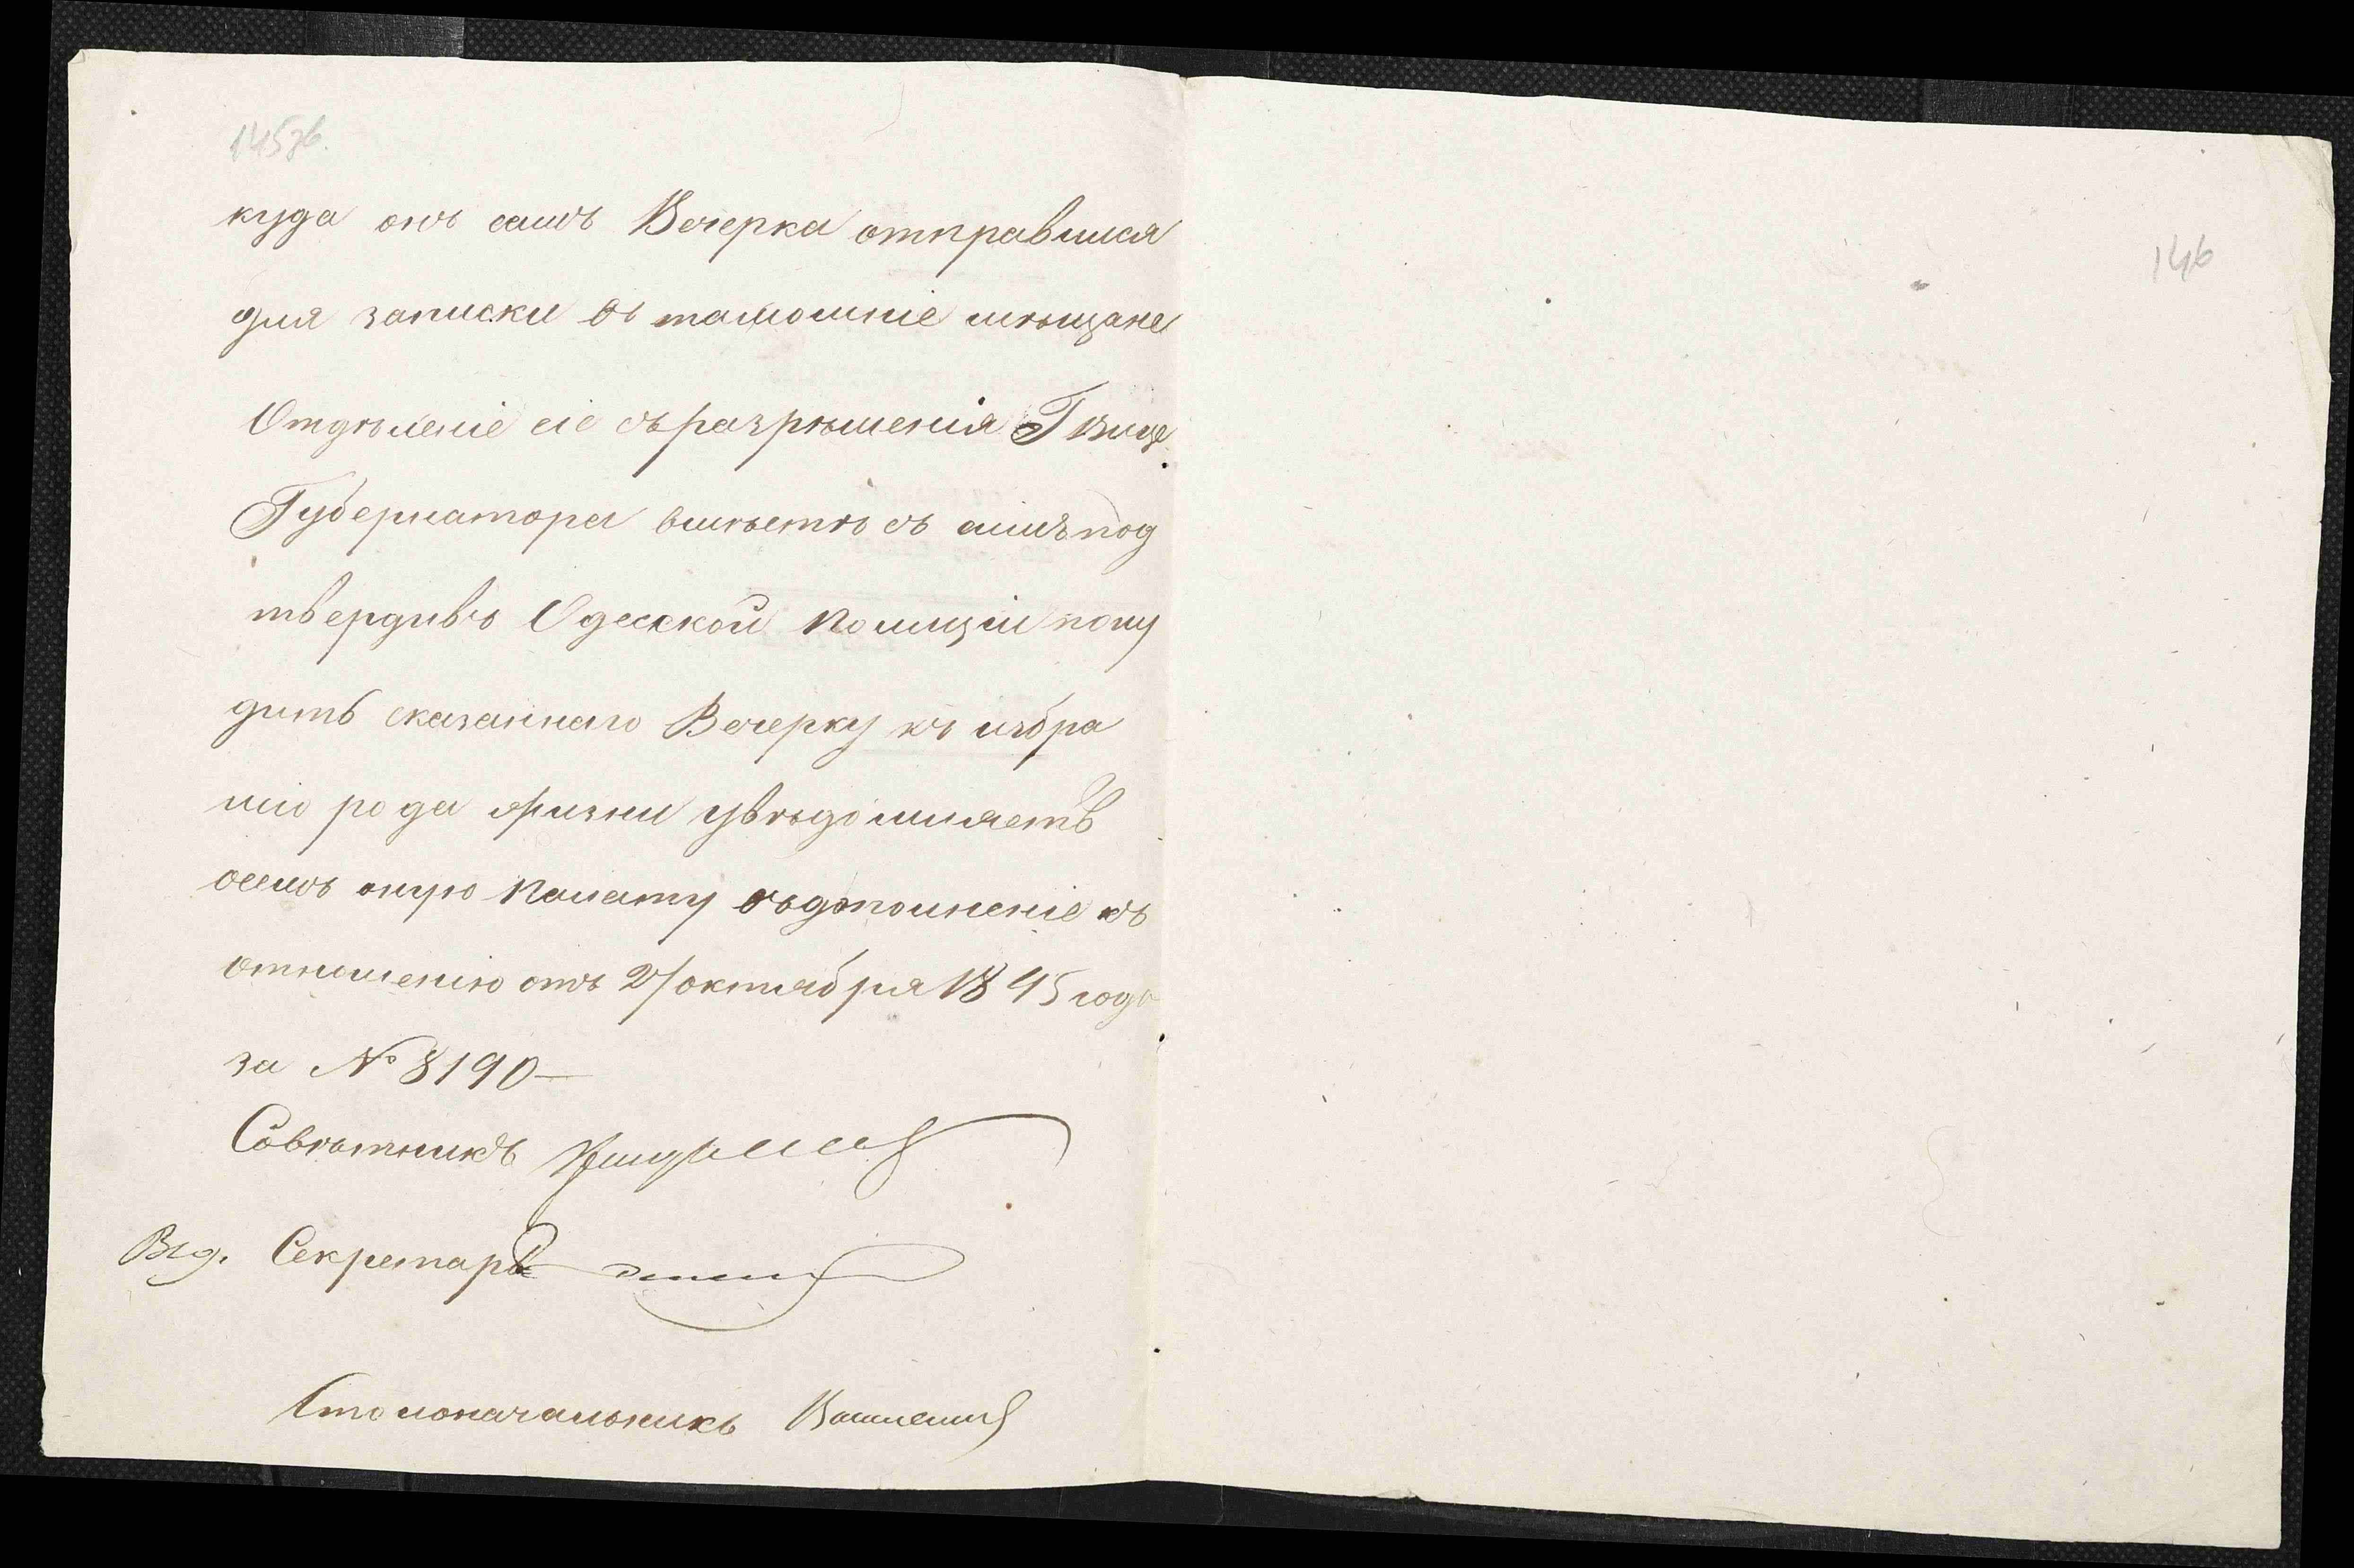 145зв.
куда онъ самъ Вечерка отправился
для записки въ тамошніе мѣщане
Отдѣленіе сіе съ разрѣшенія Г Вице
Губернатора вмѣстѣ съ симъ под
твердивъ Одесской Полиціи пону
дить сказаннаго Вечерку къ избра
нію рода жизни увѣдомляетъ
о семъ оную Палату въ дополненіе къ
отношенію отъ 27 октября 1845 года
за № 8190—
Совѣтникъ
Секретарь
Столоначальникъ
146